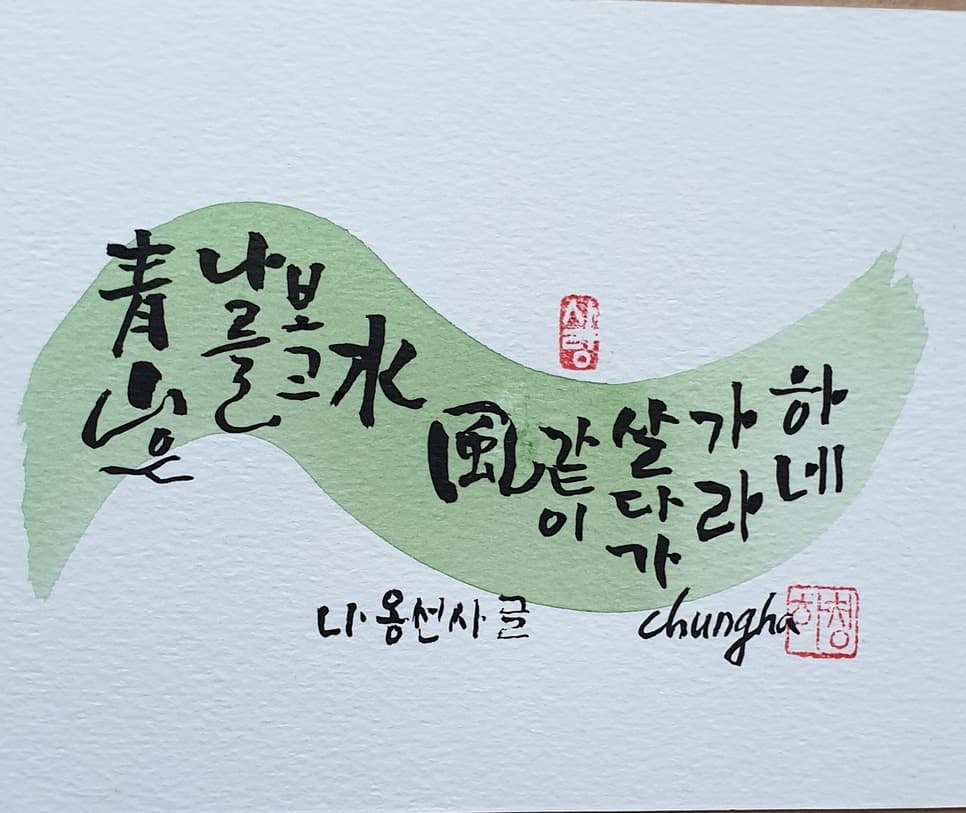 青山은
나를
보고
水
風
같이
살다가
가라
하네
사랑
나옹선사 글
chungha
청하